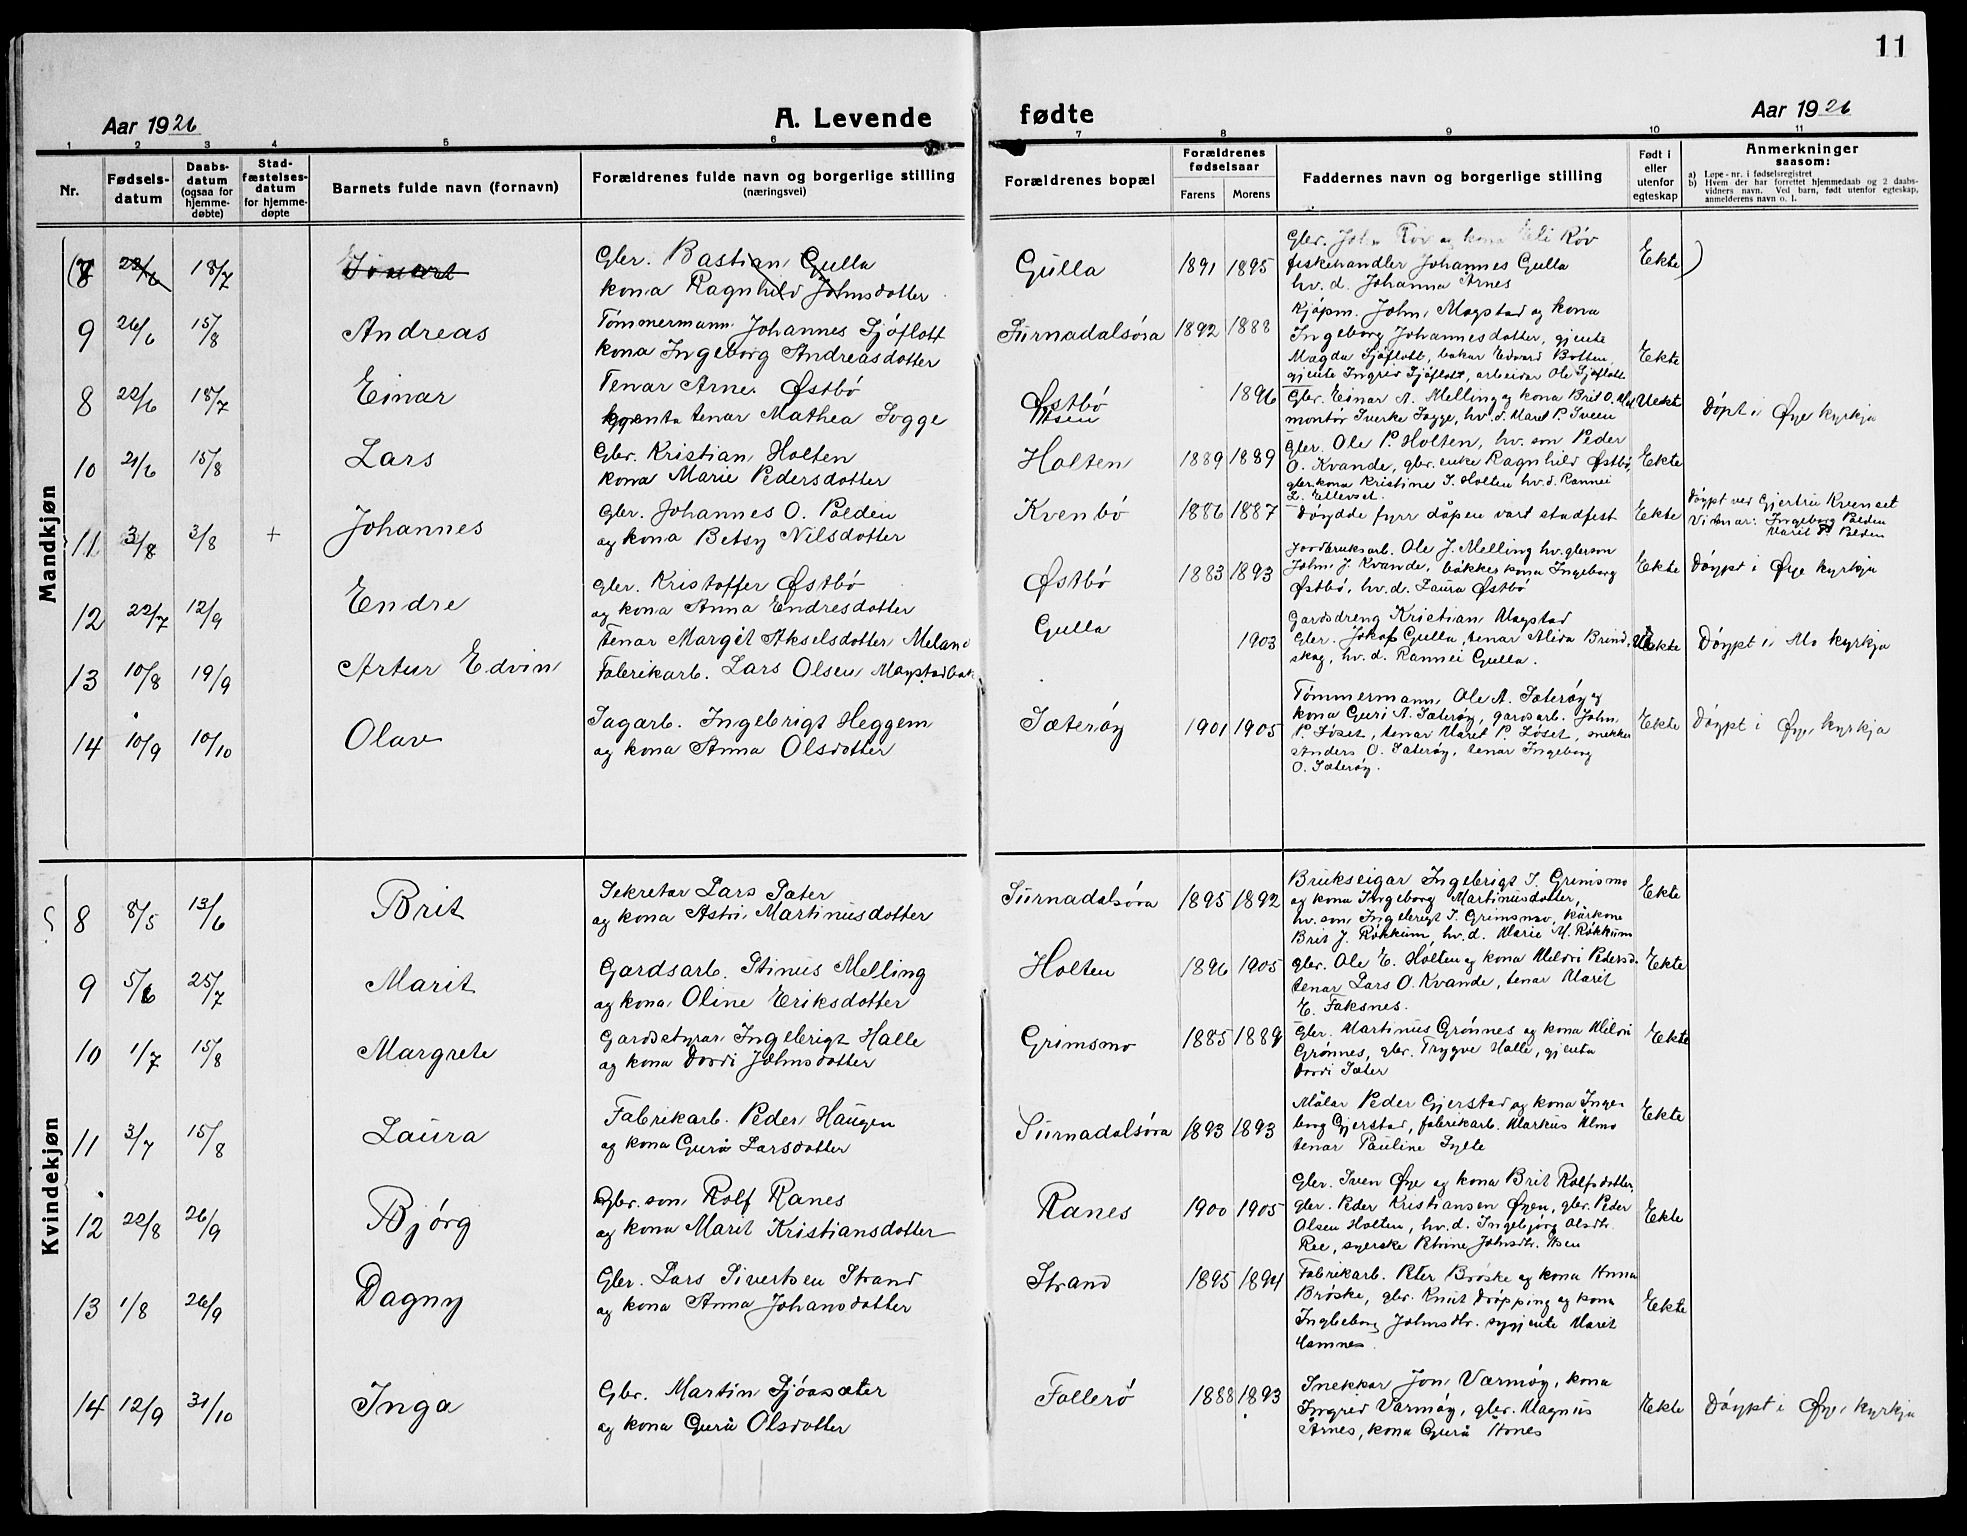 11
Aar 1926 A. Levende fødte Aar 1926
1 2 3 4 5 6 7 8 9 10 11
Nr.
Fødsels-
datum
Daabs-
datum
(ogsaa for
hjemme-
døbte)
Stad-
fæstelses-
datum
for hjemme-
døpte
Barnets fulde navn (fornavn)
Forældrenes fulde navn og borgerlige stilling
(næringsvei)
Forældrenes bopæl
Forældrenes
fødselsaar
Farens Morens
Faddernes navn og borgerlige stilling
Født i
eller
utenfor
egteskap
Anmerkninger
saasom:
a) Løpe-nr. i fødselsregistret
b) Hvem der har forrettet hjemmedaab og 2 daabs-
vidners navn. Ved barn, født utenfor egteskap,
anmelderens navn o. l.
Mandkjøn
22/6 18/7
Gbr. Bastian Gulla
kona Ragnhild Johnsdotter
Gulla 1891 1895
Gbr. John Røv og kona Eli Røv
fiskehandler Johannes Gulla
hv. d. Johanna Årnes
Ekte
9 26/6 15/8 Andreas
Tømmermann Johannes Sjøflott
kona Ingeborg Andreasdotter
Surnadalsøra 1892 1888
Kjøpm. John Magstad og kona
Ingeborg Johannesdotter, gjente
Magda Sjøflott, bakar Edvard Botten,
gjente Ingrid Sjøflott, arbeidar Ole Sjøflott
Ekte
8 22/6 18/7 Einar
Tenar Arne Østbø
tenar Mathea Sogge
Østbø
1896
Gbr. Einar A. Melling og kona Brit O.
montør Sverke Sogge, hv. d. Maret P. Sveen
Uekte
Døpt i Øye kyrkja
10 21/6 15/8 Lars
Gbr. Kristian Holten
kona Marie Pedersdotter
Holten 1889 1889
Gbr. Ole P. Holten, hv. son Peder
O. Kvande, gbr. enke Ragnhild Østbø,
gbr. kona Kristine I. Holten hv. d. Rannei
L. Ellevset.
Ekte
11 3/8 3/8 + Johannes
Gbr. Johannes O. Polden
og kona Betsy Nilsdotter
Kvenbø 1886 1887
Døydde fyrr dåpen vart stadfest
Ekte
Døypt ved Gjertru Kvenset
Vidnar: Ingeborg Polden
Marit P. Polden
12 22/7 12/9 Endre
Gbr. Kristoffer Østbø
og kona Anna Endresdotter
Østbø 1883 1893
Jordbruksarb. Ole J. Melling hv. gbrson
John J. Kvande, bøkkerkona Ingeborg
Østbø, hv. d. Laura Østbø
Ekte
Døypt i Øye kyrkja
13 10/8 19/9 Artur Edvin
Tenar Margit Akselsdotter Meland
Fabrikarb. Lars Olsen
Gulla
1903
Gardsdreng Kristian Magstad
Gbr. Jakop Gulla, tenar Alida Brind-
skag, hv. d. Rannei Gulla.
Uekte
Døypt i Mo kyrkja
14 10/9 10/10 Olav
Sagarb. Ingebrigt Heggem
og kona Anna Olsdotter
Sæterøy 1901 1905
Tømmermann Ole A. Sæterøy og
kona Guri A. Sæterøy, gardsarb. John
P. Løset, tenar Maret P. Løset, snekker
Anders O. Sæterøy, tenar Ingeborg
O. Sæterøy.
Ekte
Døypt i Øye kyrkja
Kvindekjøn
8 8/5 13/6 Brit
Sekretær Lars Sæter
og kona Astri Martinusdotter
Surnadalsøra 1895 1892
Brukseigar Ingebrigt I. Grimsmo
og kona Ingeborg Martinusdotter,
hv. son Ingebrigt I. Grimsmo, kårkone
Brit J. Røkkum, hv. d. Marie M. Røkkum
Ekte
9 5/6 25/7 Marit
Gardsarb. Stinus Melling
og kona Oline Eriksdotter
Holten 1896 1905
Gbr. Ole E. Holten og kona Mildri Pedersd.
tenar Lars O. Kvande, tenar Marit
E. Faksnes.
Ekte
10 1/7 15/8 Margrete
Gardsstyrar Ingebrigt Halle
og kona Dordi Johnsdotter
Grimsmo 1885 1889
Gbr. Martinus Grønnes og kona Mildri
Grønnes, gbr. Trygve Halle, gjenta
Dordi Sæter
Ekte
11 3/7 15/8 Laura
Fabrikarb. Peder Haugen
og kona Guru Larsdotter
Surnadalsøra 1893 1893
Målar Peder Gjerstad og kona Inge-
borg Gjerstad, fabrikarb. Markus Almo
tenar Pauline Sylte
Ekte
12 22/8 26/9 Bjørg
Gbr. son Rolf Ranes
og kona Marit Kristiansdotter
Ranes 1900 1905
Gbr. Sven Øye og kona Brit Rolfsdotter,
gbr. Peder Kristiansen Øyen, gbr. Peder
Olsen Holten, hv. d. Ingebjørg Olsdtr.
Ree, syerske Petrine Johnsdtr. Moen
Ekte
13 1/8 26/9 Dagny
Gbr. Lars Sivertsen Strand
og kona Anna Johansdotter
Strand 1895 1894
Fabrikarb. Peter Brøske og kona Anna
Brøske, gbr. Knut Drøpping og kona
Ingbeborg Johnsdtr. sygjente Marit
Hamnes
Ekte
14 12/9 31/10 Inga
Gbr. Martin Sjøasæter
og kona Guru Olsdotter
Follerø 1888 1893
Snekkar Jon Værmøy, kona
Ingrid Værmøy, gbr. Magnus
Årnes, kona Guru Årnes
Ekte
Døypt i Øye kyrkja